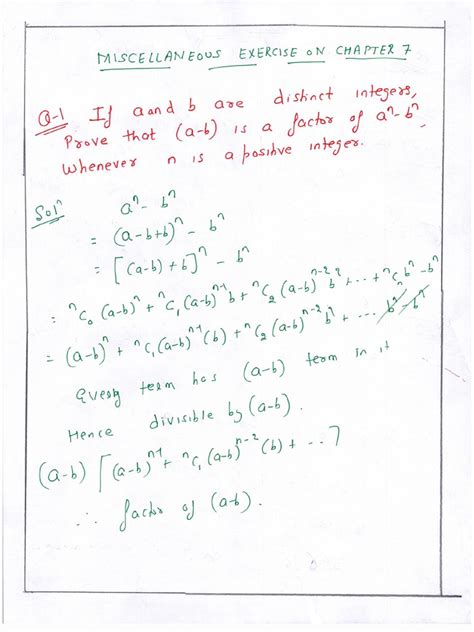 MISCELLANEOUS EXERCISE ON CHAPTER 7
Q-1 If a and b are distinct integers,
Prove that (a-b) is a factor of aⁿ- bⁿ,
Whenever n is a positive integer.
Solⁿ aⁿ- bⁿ
= (a-b+b)ⁿ - bⁿ
= [(a-b) + b]ⁿ - bⁿ
= ⁿC₀ (a-b)ⁿ + ⁿC₁ (a-b)ⁿ⁻¹ b + ⁿC₂ (a-b)ⁿ⁻² b² + ... + ⁿCₙ bⁿ - bⁿ
= (a-b)ⁿ + ⁿC₁ (a-b)ⁿ⁻¹ (b) + ⁿC₂ (a-b)ⁿ⁻² b² + ... bⁿ - bⁿ
Every term has (a-b) term in it
Hence divisible by (a-b).
(a-b) [(a-b)ⁿ⁻¹ + ⁿC₁ (a-b)ⁿ⁻² (b) + ..]
∴ factor of (a-b).